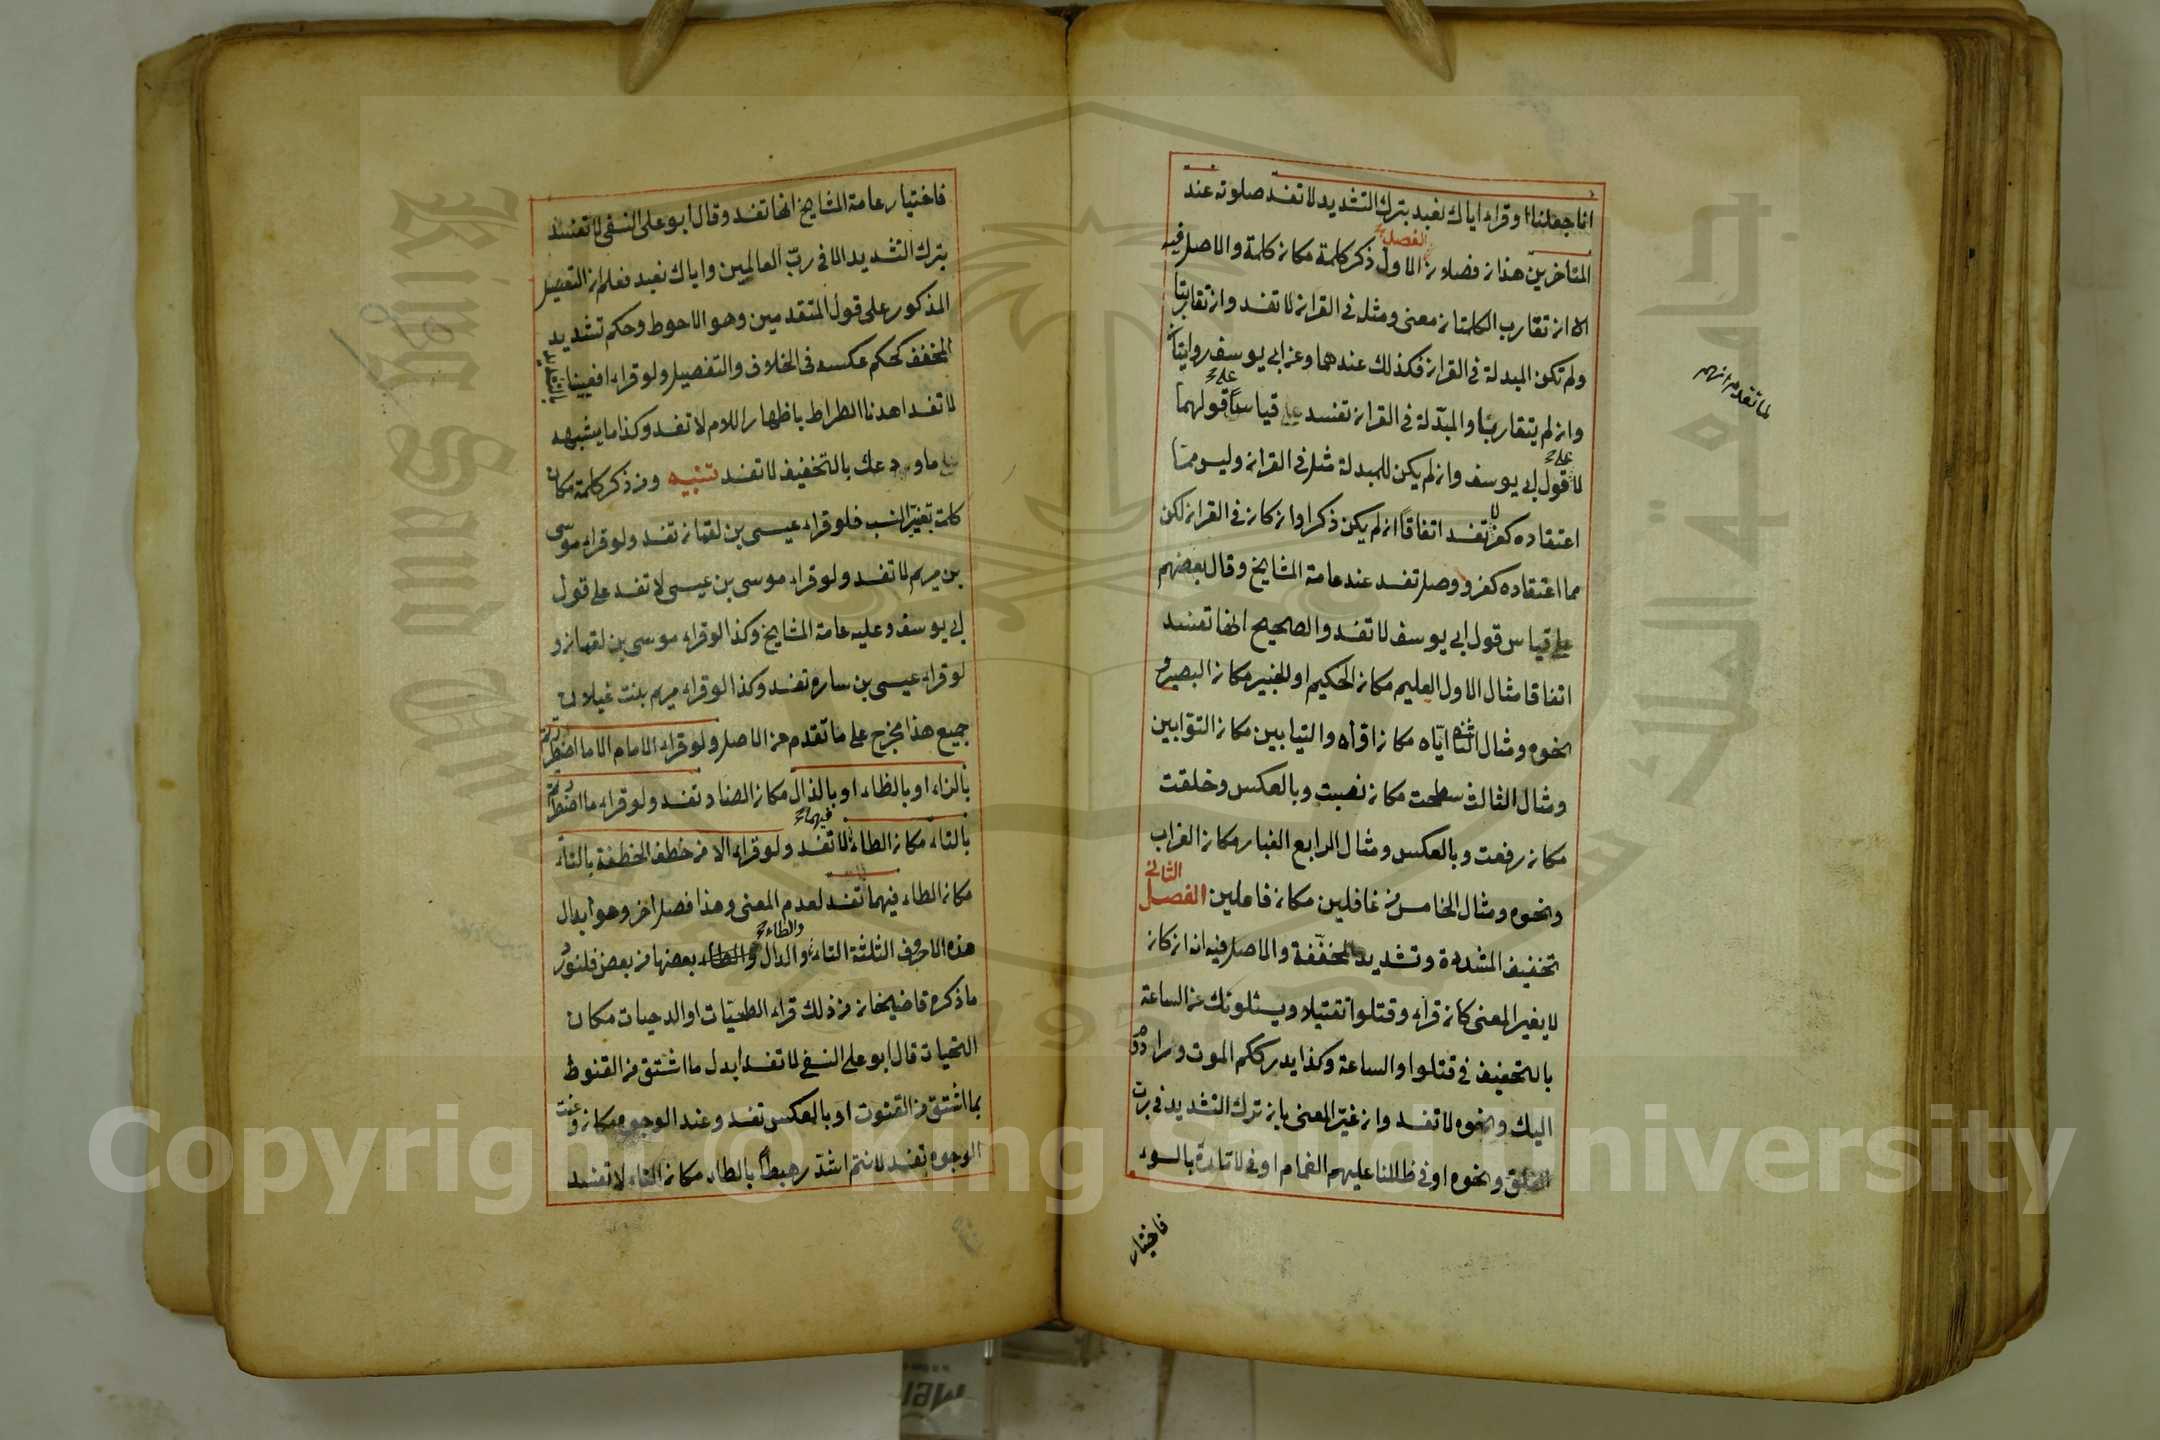 انا جعلنا او قراء اياك نعبد بترك التشديد لا تفسد صلوته عند
المتأخرين هذان فصلان الفصل الاول ذكر كلمة مكان كلمة والاصل فيه
الا ان تقارب الكلمتان معنى ومثله في القران لا تفسد وان تقاربتا
ولم تكن المبدلة في القران فكذلك عندهما وعن ابي يوسف روايتان
وان لم يتقاربتا والمبدلة في القران تفسد على قياس قولهما
لا على قول ابي يوسف وان لم يكن للمبدلة مثل في القران وليس مما
اعتقاده كفر لا تفسد اتفاقا ان لم يكن ذكرا وان كان في القران لكن
مما اعتقاده كفر ووصل تفسد عند عامة المشايخ وقال بعضهم
على قياس قول ابي يوسف لا تفسد والصحيح انها تفسد
اتفاقا مثال الاول العليم مكان الحكيم او الخبير مكان البصير و
نحوه ومثال الثاني ايّاه مكان اوّاه والتيابين مكان التوابين
ومثال الثالث سطحت مكان نصبت وبالعكس وخلقت
مكان رفعت وبالعكس ومثال الرابع الغبار مكان الغراب
ونحوه ومثال الخامس غافلين مكان فاعلين الفصل الثاني
تخفيف المشدد وتشديد المخففة والاصل فيه انه ان كان
لا يغير المعنى كان قراء وقتلوا تقتيلا ويسئلونك عن الساعة
بالتخفيف في قتلوا والساعة وكذا يدرككم الموت وراودوه
اليك ونحوه لا تفسد وان غير المعنى بان ترك التشديد في برب
الفلق ونحوه او في ظللنا عليهم الغمام او في لامارة بالسوء
لما تقدم انهم
فاختيار
فاختيار عامة المشايخ انها تفسد وقال ابو علي النسفي لا تفسد
بترك التشديد الا في ربّ العالمين واياك نعبد فعلم ان التفصيل
المذكور على قول المتقدمين وهو الاحوط وحكم تشديد
المخفف كحكم عكسه في الخلاف والتفصيل ولو قراء افعيينا
لا تفسد اهدنا الصراط باظهار اللام لا تفسد وكذا ما يشبهه
ما ودعك بالتخفيف لا تفسد تنبيه ومن ذكر كلمة مكان
كلمة تغيير النسب فلو قراء عيسى بن لقمان تفسد ولو قراء موسى
بن مريم لا تفسد ولو قراء موسى بن عيسى لا تفسد على قول
ابي يوسف وعليه عامة المشايخ وكذا لو قراء موسى بن لقمان و
لو قراء عيسى بن ساره تفسد وكذا لو قراء مريم بنت غيلان
جميع هذا مخرج على ما تقدم من الاصل ولو قراء الامام الا ما اضطررتم
بالزاء او بالظاء او بالذال مكان الضاد تفسد ولو قراء ما اضطررتم
بالتاء مكان الطاء لا تفسد ولو قراء الا من خطف الخطفة بالتاء
مكان الطاء فيهما تفسد لعدم المعنى وهذا فصل اخر وهو ابدال
هذه الاحرف الثلثة التاء والدال والطاء بعضها من بعض فلنورد
ما ذكره قاضيخان من ذلك قراء الطحيات او الدحيات مكان
التحيات قال ابو علي النسفي لا تفسد ابدل ما اشتق من القنوط
بما اشتق من القنوت او بالعكس تفسد وعند الوجوه مكان وعنت
الوجوه تفسد لانتم اشد رهبطا بالطاء مكان التاء لا تفسد
Copyright © King Saud University
King Saud University
1957